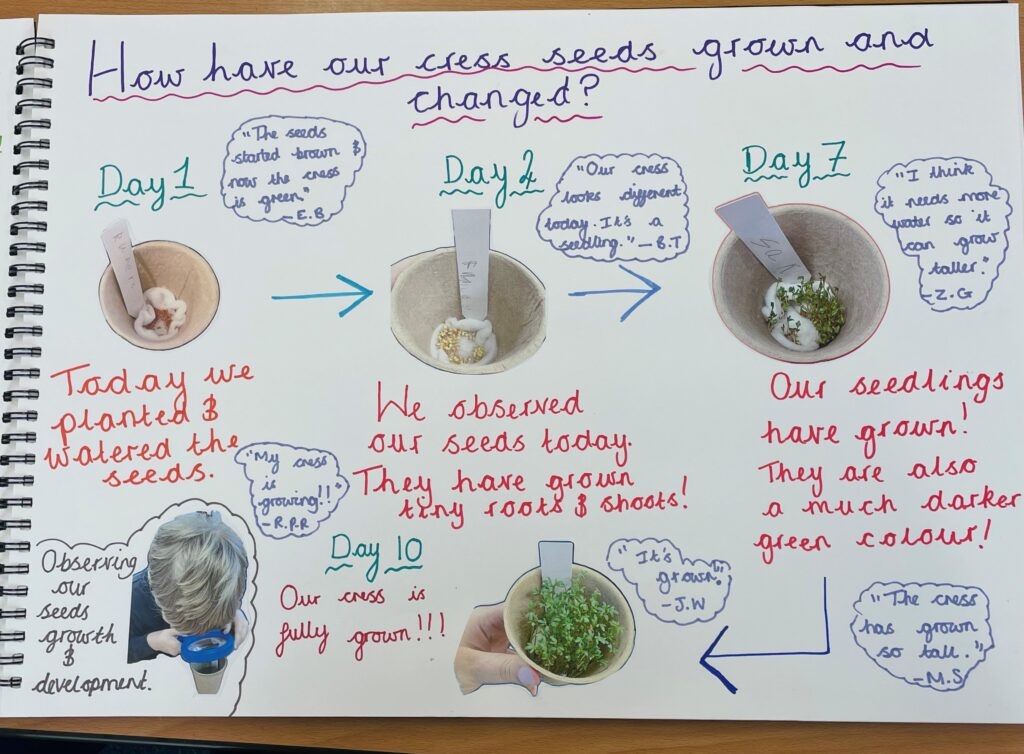 How have our cress seeds grown and
changed?
Day 1
"The seeds
started brown &
now the cress
is green."
- E.B
Day 2
"Our cress
looks different
today. It's a
seedling." - B.T
Day 7
"I think
it needs more
water so it
can grow
taller."
- Z.G
Today we
planted &
watered the
seeds.
We observed
our seeds today.
They have grown
tiny roots & shoots!
Our seedlings
have grown!
They are also
a much darker
green colour!
"My cress
is
growing!!"
- R.P.R
Observing
our
seeds
growth
&
development.
Day 10
Our cress is
fully grown!!!
"It's
grown."
- J.W
"The cress
has grown
so tall."
- M.S